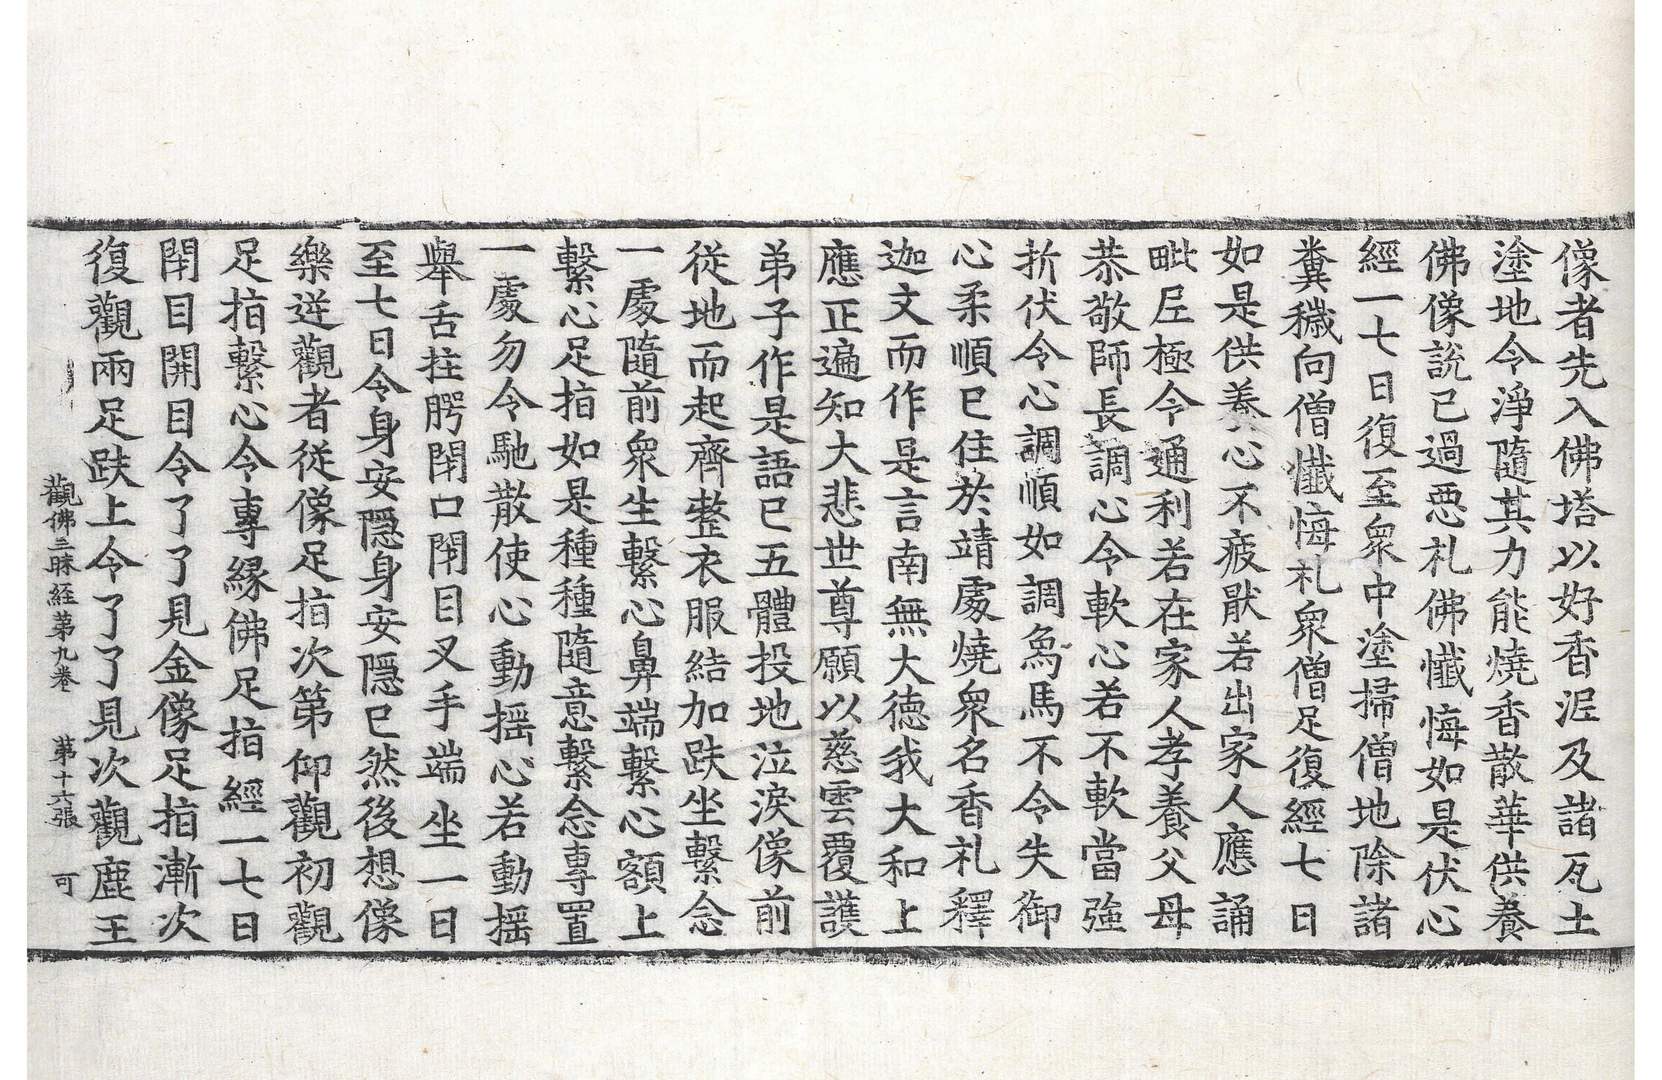 像者先入佛塔以好香泥及諸瓦土
塗地令淨隨其力能燒香散華供養
佛像說已過惡礼佛懺悔如是伏心
經一七日復至衆中塗掃僧地除諸
糞穢向僧懺悔礼衆僧足復經七日
如是供養心不疲猒若出家人應誦
毗尼極令通利若在家人孝養父母
恭敬師長調心令軟心若不軟當強
折伏令心調順如調烏馬不令失御
心柔順已住於靖處燒衆名香礼釋
迦文而作是言南無大德我大和上
應正遍知大悲世尊願以慈雲覆護
弟子作是語已五體投地泣淚像前
從地而起齊整衣服結加趺坐繫念
一處隨前衆生繫心鼻端繫心額上
繫心足指如是種種隨意繫念專置
一處勿令馳散使心動搖心若動搖
舉舌拄腭閉口閉目叉手端坐一日
至七日令身安隱身安隱已然後想像
樂逆觀者從像足指次第仰觀初觀
足指繫心令專緣佛足指經一七日
閉目開目令了了見金像足指漸次
復觀兩足趺上令了了見次觀鹿王
觀佛三昧経第九卷 第十六張 可